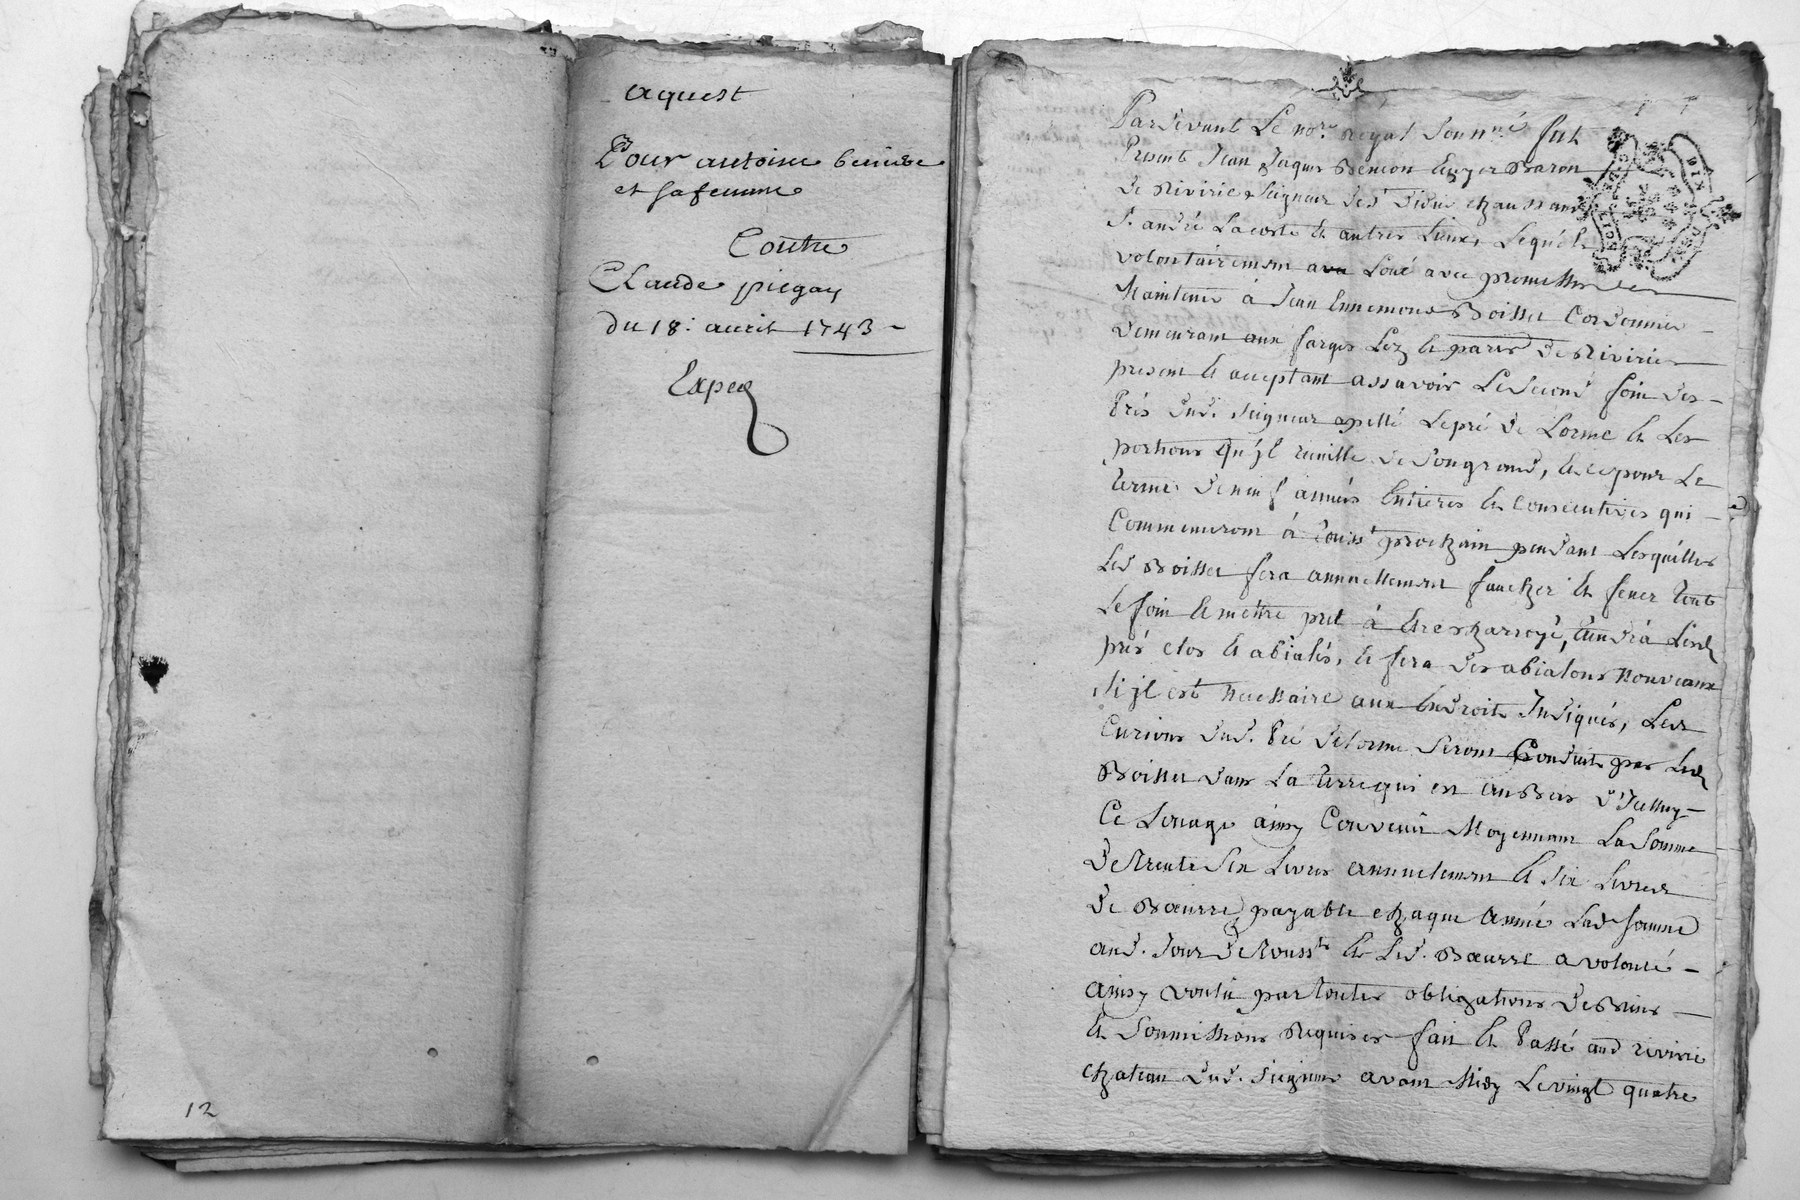 aquest
Pour antoine
et sa femme
Contre
Claude piegay
du 18: avril 1743
Exped
12
Pardevant Le no.re Royal Sous.né fut
Present Jean Jaques Ecuyer Baron
De Riviriee Seigneur des
S. andré Lacoste et autres Lieux, Lequel
volontairement a Loué avec promesse de
Maintenir à Jean Ennemond Boisset Cordonnier
Demeurant aux farges Lez et paroisse de Riviriee
present et acceptant assavoir Le Second foin des
Prés dud. Seigneur apellé Le pré de Lorme et Les
portions qu'jl de Son grand, et ce pour Le
terme de neuf années Entieres et consecutives qui
Commenceront à prochain pendant Lesquelles
Led Boisset fera annuellement faucher et fener tout
Le foin et mettre pret à étre charroyé, tiendra Lesd
prés clos et abialés, et fera des abialons nouveaux
Si jl est necessaire aux Endroits Indiqués, Les
Curions dud. Pré delorme seront Conduits par Led
Boisset dans La terre qui est au
Ce Louage ainsy Convenû Moyennant La Somme
De trente Six Livres annuelement et Six Livres
De Boeurre payable chaque année Lad somme
aud. Jour De touss.ts et Led. Boeurre a volonté
ainsy voulû par toutes obligations De Biens
et Soumissions Requises fait et Passé aud riviriee
chateau dud. Seigneur avant Midy Le vingt quatre